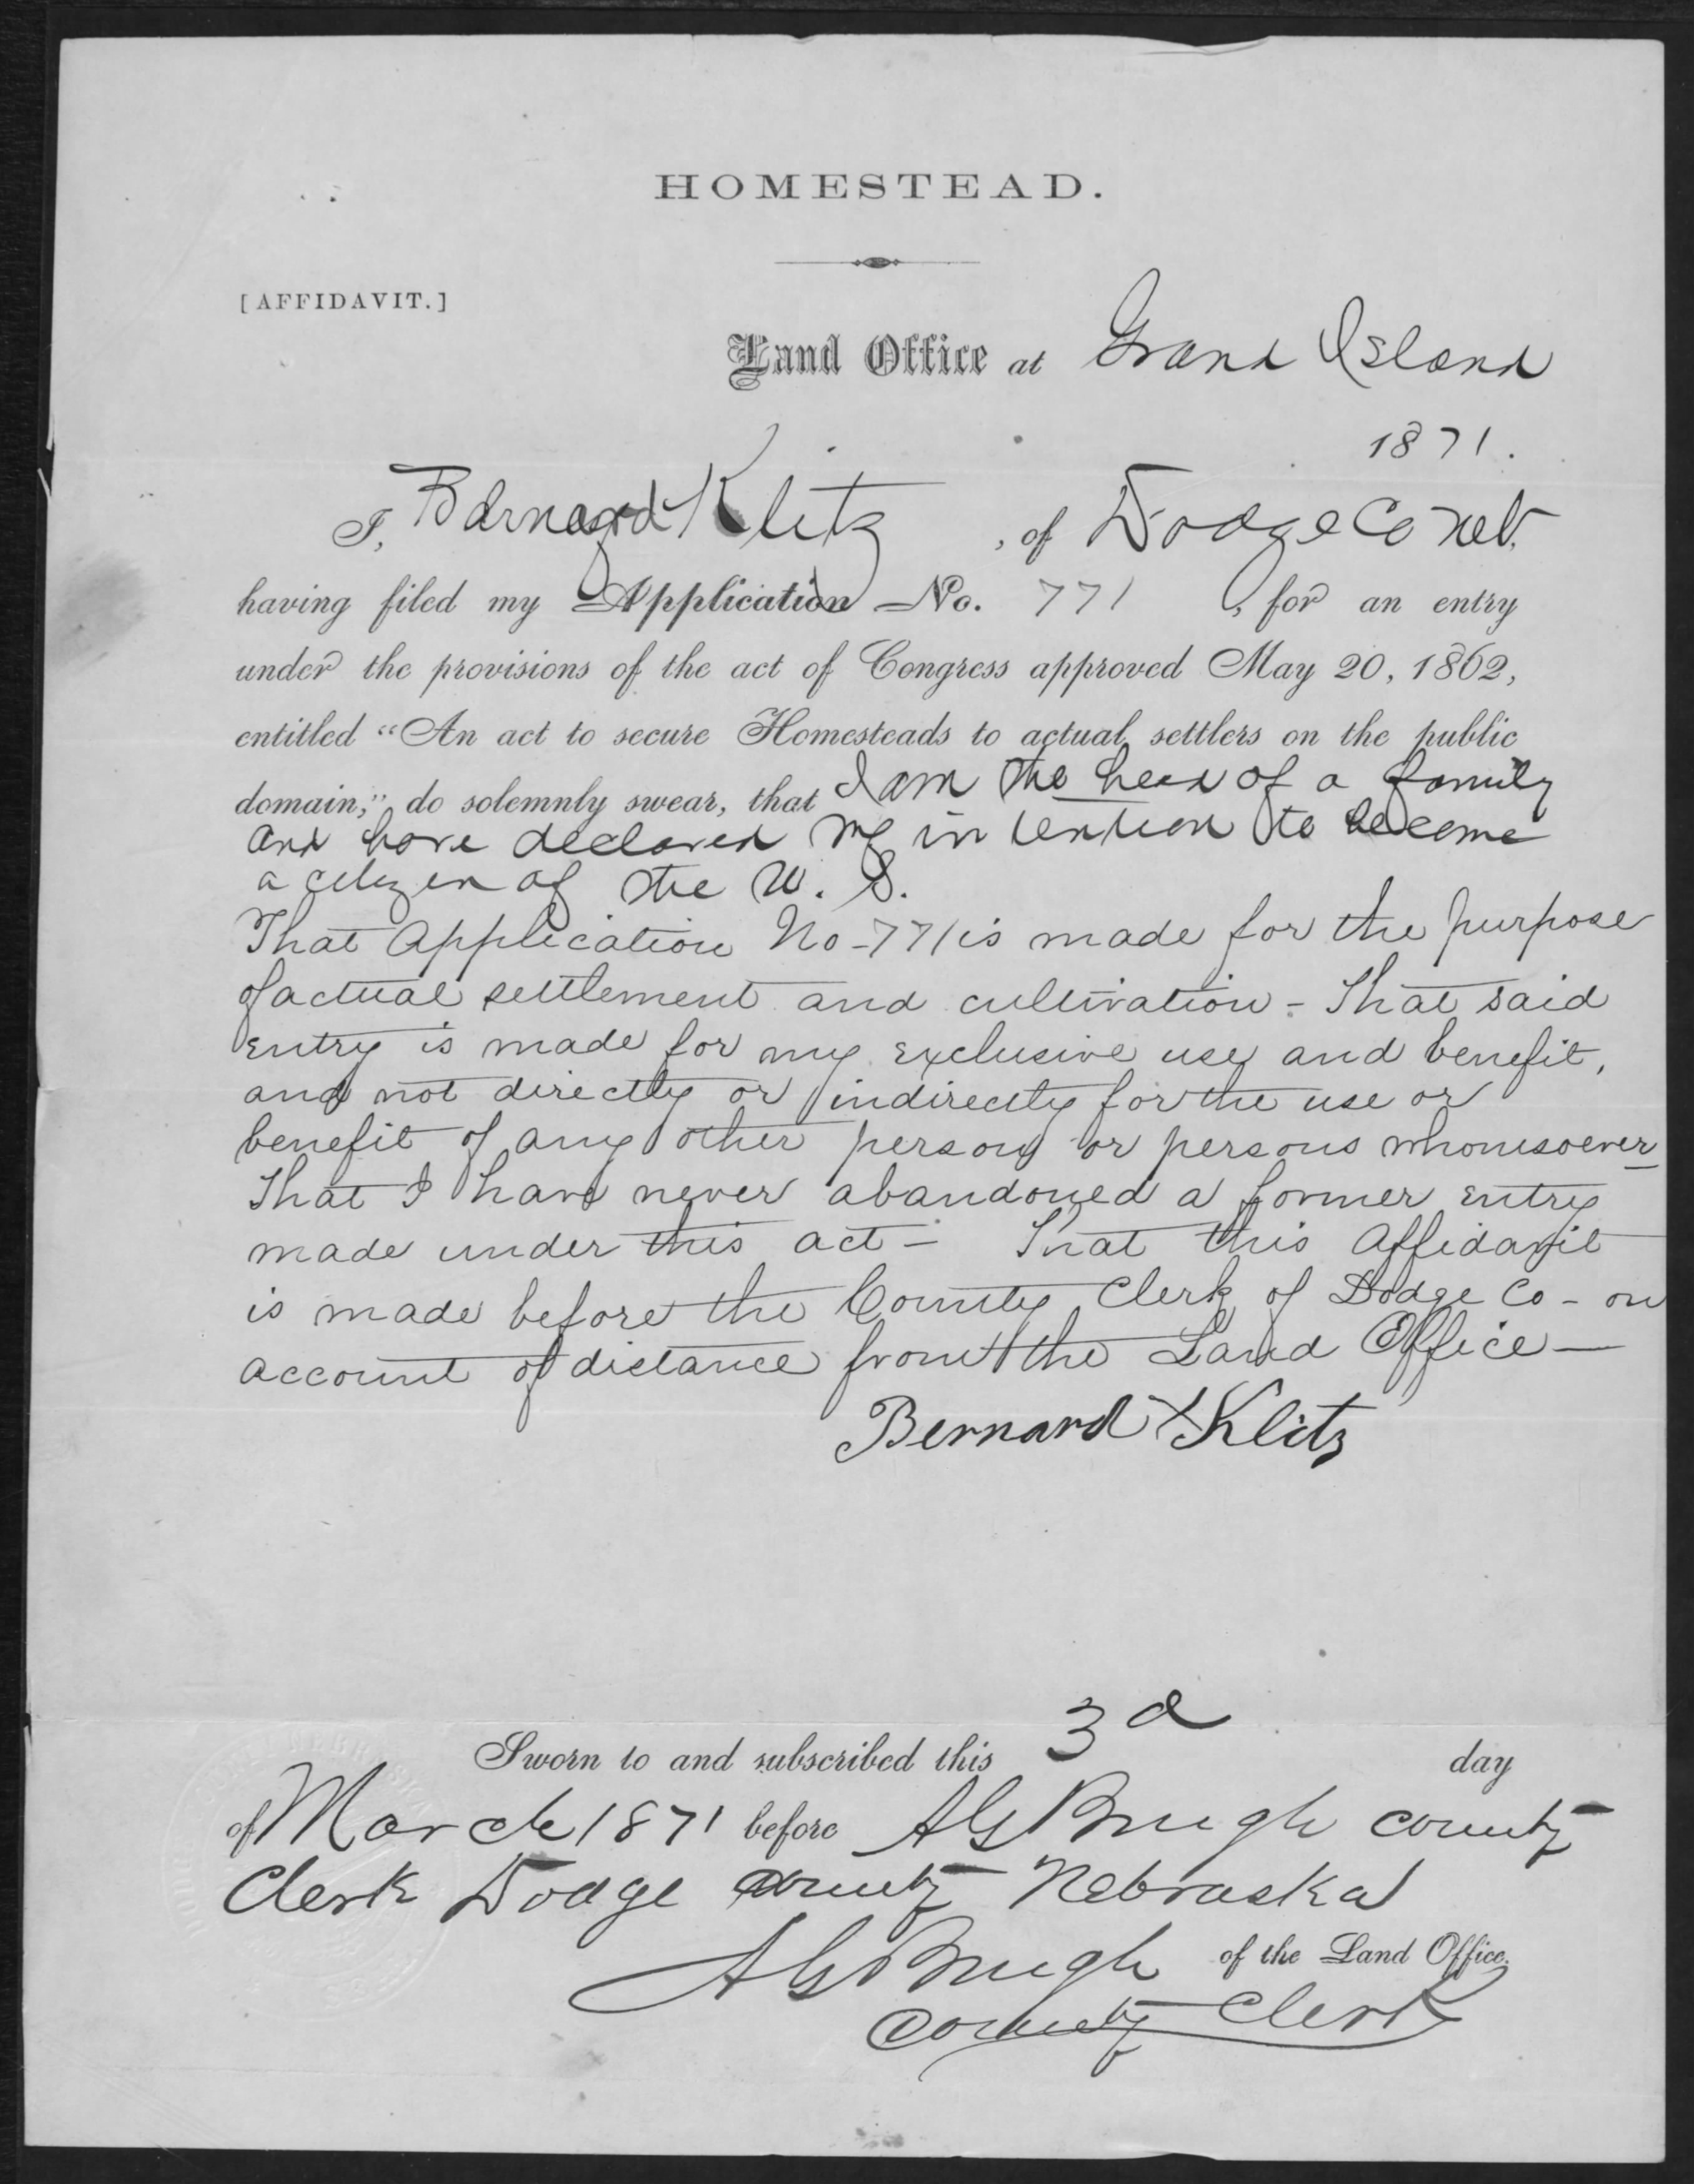 HOMESTEAD.
[AFFIDAVIT.]
Land Office at Grand Island
1871.
I, Bernard Klitz, of Dodge Co Neb.
having filed my Application No. 771, for an entry
under the provisions of the act of Congress approved May 20, 1862,
entitled "An act to secure Homesteads to actual settlers on the public
domain," do solemnly swear, that I am the head of a family
and have declared my intention to become
a citizen of the U. S.
That Application No - 771 is made for the purpose
of actual settlement and cultivation - That said
entry is made for my exclusive use and benefit,
and not directly or indirectly for the use or
benefit of any other person or persons whomsoever
That I have never abandoned a former entry
made under this act - That this Affidavit
is made before the County Clerk of Dodge Co - on
account of distance from the Land Office -
Bernard X Klitz
Sworn to and subscribed this 3d day
of March 1871 before A G Brugh county
Clerk Dodge county Nebraska
A G Brugh of the Land Office.
County Clerk